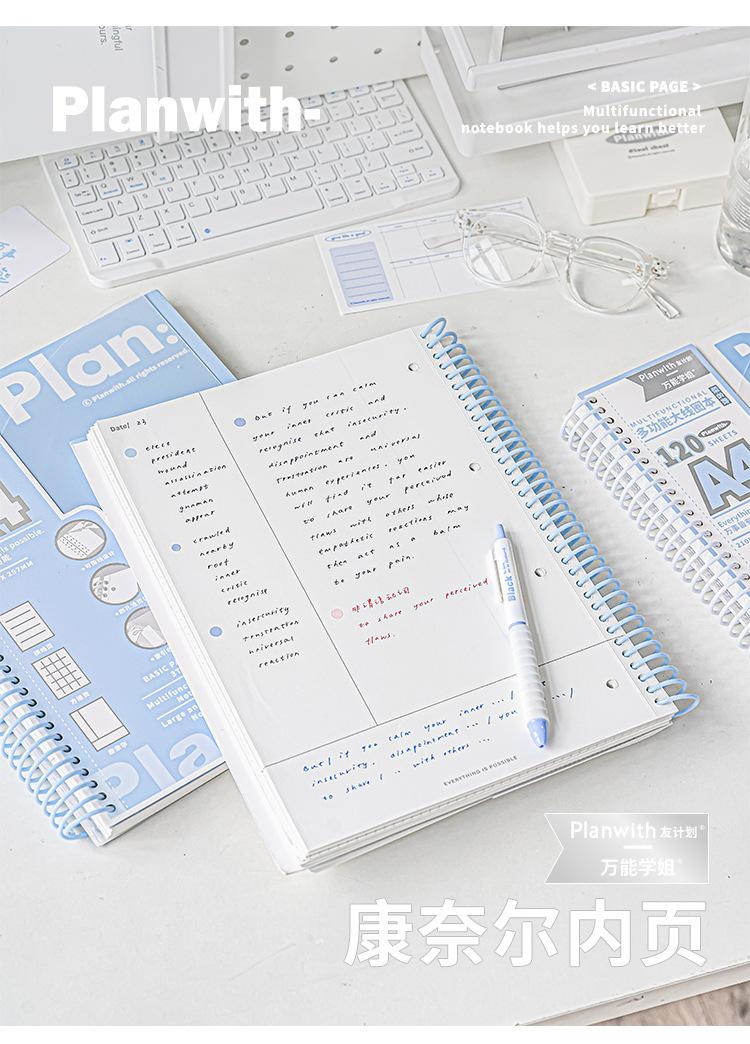 Planwith-
< BASIC PAGE >
Multifunctional
notebook helps you learn better
Plan:
© Planwith.all rights reserved.
Date| 23
elect
president
wound
assassination
attempt
gunman
appear
crawled
nearby
roof
inner
critic
recognise
insecurity
frustration
universal
reaction
But if you can calm
your inner critic and
recognise that insecurity,
disappointment and
frustration are universal
human experiences, you
will find it far easier
to share your perceived
flaws with others whose
empathetic reactions may
then act as a balm
to your pain.
to share your perceived
flaws.
But / if you calm your inner ... /
insecurity, disapointment ... / you
to share / .. with others ...
EVERYTHING IS POSSIBLE
Planwith 友计划
万能学姐
MULTIFUNCTIONAL
多功能大线圈本
120 SHEETS
Planwith-
A4
BASIC PA
Pla
Planwith 友计划®
万能学姐®
康奈尔内页